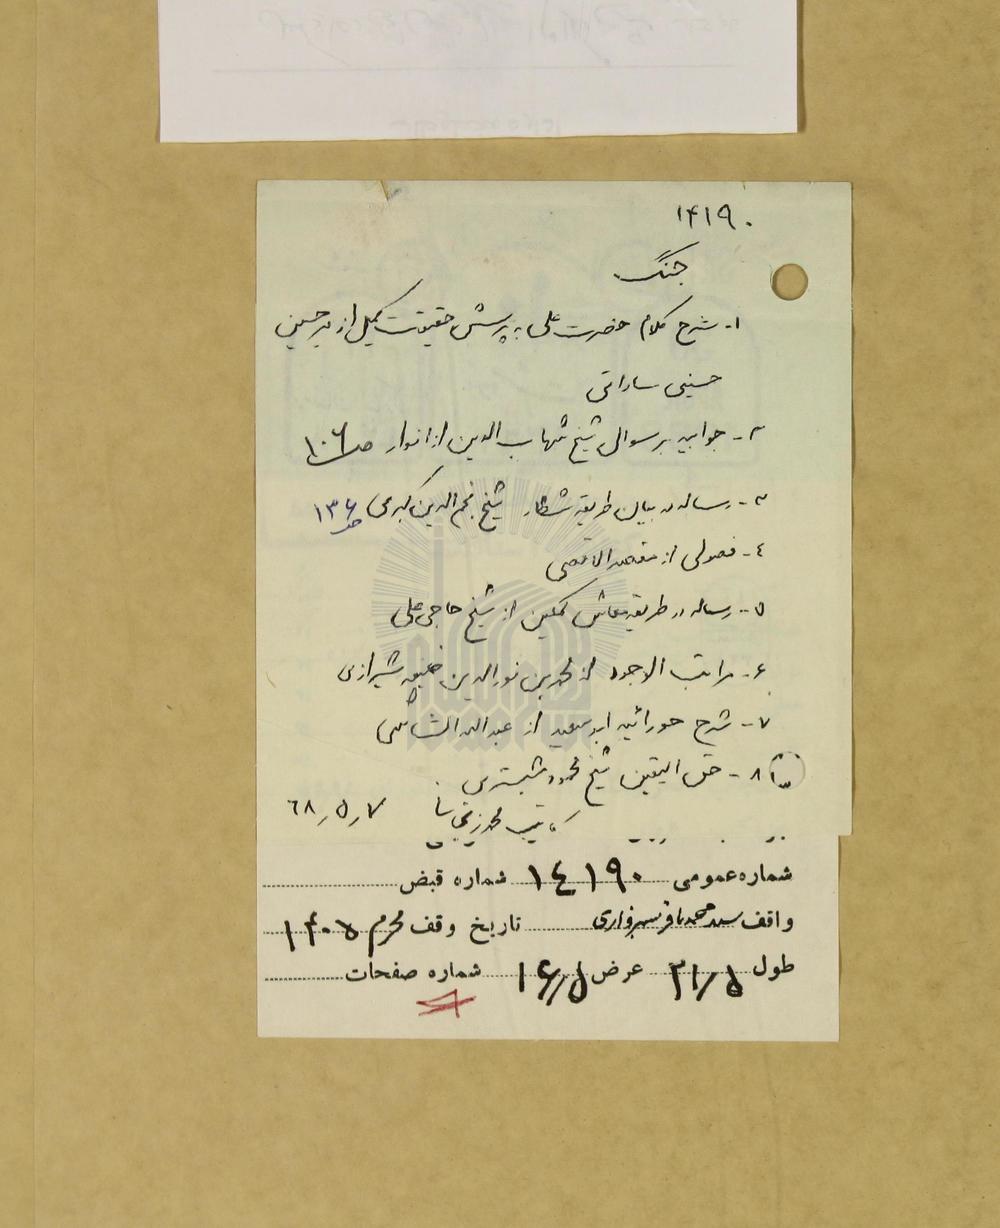 ۱۴۱۹۰
جنگ
۱- شرح کلام حضرت علی به پرسش حقیقت کمیل از میر حسین
حسینی ساداتی
۲- جوابیه بر سوال شیخ شهاب الدین از انوار ص ۱۰۶
۳- رساله در بیان طریقه شطار شیخ نجم الدین کبری ص ۱۳۶
٤- فصولی از مقصد الاقصی
۵- رساله در طریقه معاش کملین از شیخ حاجی علی
۶- مراتب الوجود از محمد بن نورالدین خلیفه شیرازی
۷- شرح حورائیه ابو سعید از عبدالله الشاشی
۸- حق الیقین شیخ محمود شبستری
کاتب محمد
٦٨٫٥٫٧
شماره عمومی ۱٤۱۹۰ شماره قبض
واقف سید محمد باقر سبزواری تاریخ وقف محرم ۱۴۰۵
طول ۳۱/۵ عرض ۱۶/۵ شماره صفحات